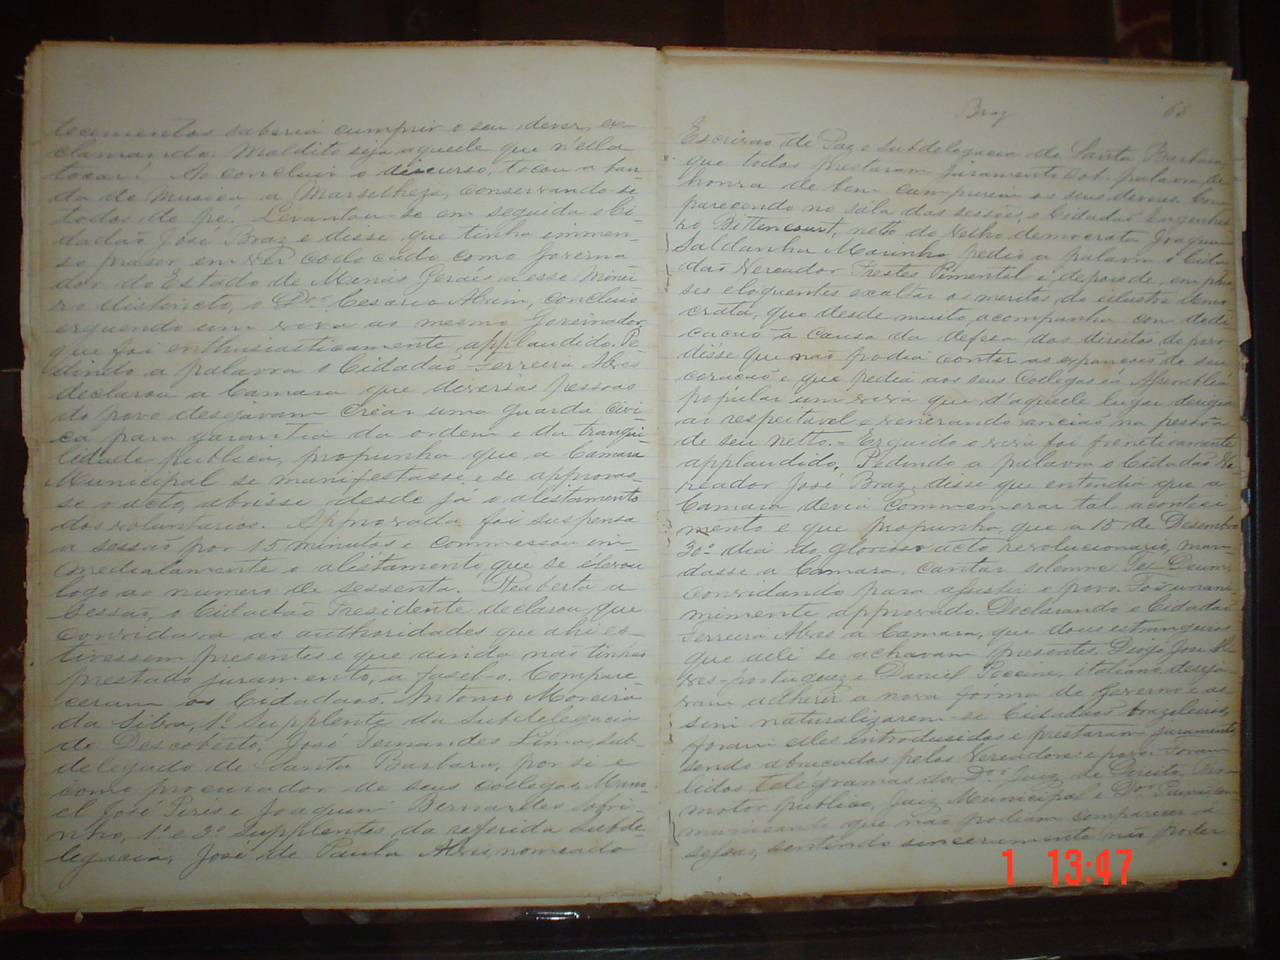 tecimentos saberia cumprir o seu dever, ex-
clamando: Maldito seja aquelle que n'ella
tocar! Ao concluir o discurso, tocou a ban-
da de Musica a Marselheza, conservando-se
todos de pé. Levantou-se em seguida o Ci-
dadão José Braz e disse que tinha immen-
so praser, em ver collocado como Governa
dor do Estado de Minas Geraes a esse Minei-
ro distincto, o Dor. Cesario Alvim, concluio
erguendo um viva ao mesmo Governador,
que foi enthusiasticamente applaudido. Pe
dindo a palavra o Cidadão Ferreira Alves
declarou a Camara que diversas pessoas
do povo desejavam crear uma guarda civi-
ca para garantia da ordem e da tranqui-
lidade publica, propunha que a Camara
Municipal se manifestasse e se approvas-
se o acto, abrisse desde já o alistamento
dos voluntarios. Approvada foi suspensa
a sessão por 15 minutos e commessou im-
mediatamente o alistamento, que se elevou
logo ao numero de sessenta. Reaberta a
Sessão, o Cidadão Presidente declarou, que
convidava as authoridades que ahi es-
tivessem presentes e que ainda não tinhão
prestado juramento, a fasel-o. Compare-
ceram os Cidadãos, Antonio Moreira
da Silva, 1º Supplente da Subdelegacia
do Descoberto, José Fernandes Lima, sub-
delegado de Santa Barbara, por si e
como procurador de seus collegas, Mano
el José Pires e Joaquim Bernardes
nho, 1º e 2º Supplentes da referida Subde-
legacia, José de Paula Alves, nomeado
Braz 68
Escrivão de Paz e Subdelegacia de Santa Barbara,
que todos prestaram juramento sob palavra de
honra de bem cumprirem os seus deveres. Com
parecendo na sala das sessões, o Cidadão Engenhei
ro Bittencourt, neto do Velho democrata Joaquim
Saldanha Marinho, pedio a palavra o Cida
dão Vereador Trestes Pimentel e, depois de, em phra
ses eloquentes exaltar os meritos do illustre Demo
crata, que desde muito, acompanha com dedi-
cação a causa da defesa dos direitos do povo
disse que não podia conter as expansões do seu
coração e que pedia aos seus Collegas e á Assembléa
popular um viva que d'aquelle lugar dirigia
ao respeitavel e venerando ancião na pessôa
de seu netto. = Erguido o viva foi freneticamente
applaudido. Pedindo a palavra o Cidadão Ve-
reador José Braz, disse que entendia que a
Camara devia commemorar tal aconteci
mento e que propunha, que a 15 de Desembro
30º dia do glorioso acto revolucionario, man
dasse a Camara, cantar solemne Te-Deum,
convidando para assistir o povo. Foi unani
mimente approvado. Declarando o Cidadão
Ferreira Alves a Camara, que dous estrangeiros
que alli se achavam presentes, Diogo José Al
ves-portuguez e Daniel italiano deseja
vam adherir a nova forma de Governo e as
sim naturalizarem-se Cidadãos brazileiros,
foram elles introduzidos e prestaram juramento
sendo abraçados pelos Vereadores e povo. Foram
lidos telegramas do Dor. Juiz de Direito, Pro-
motor publico, Juiz Municipal e Dor. com
municando que não podiam comparecer á
sessão, sentindo sinceramente não poder
1 13:47